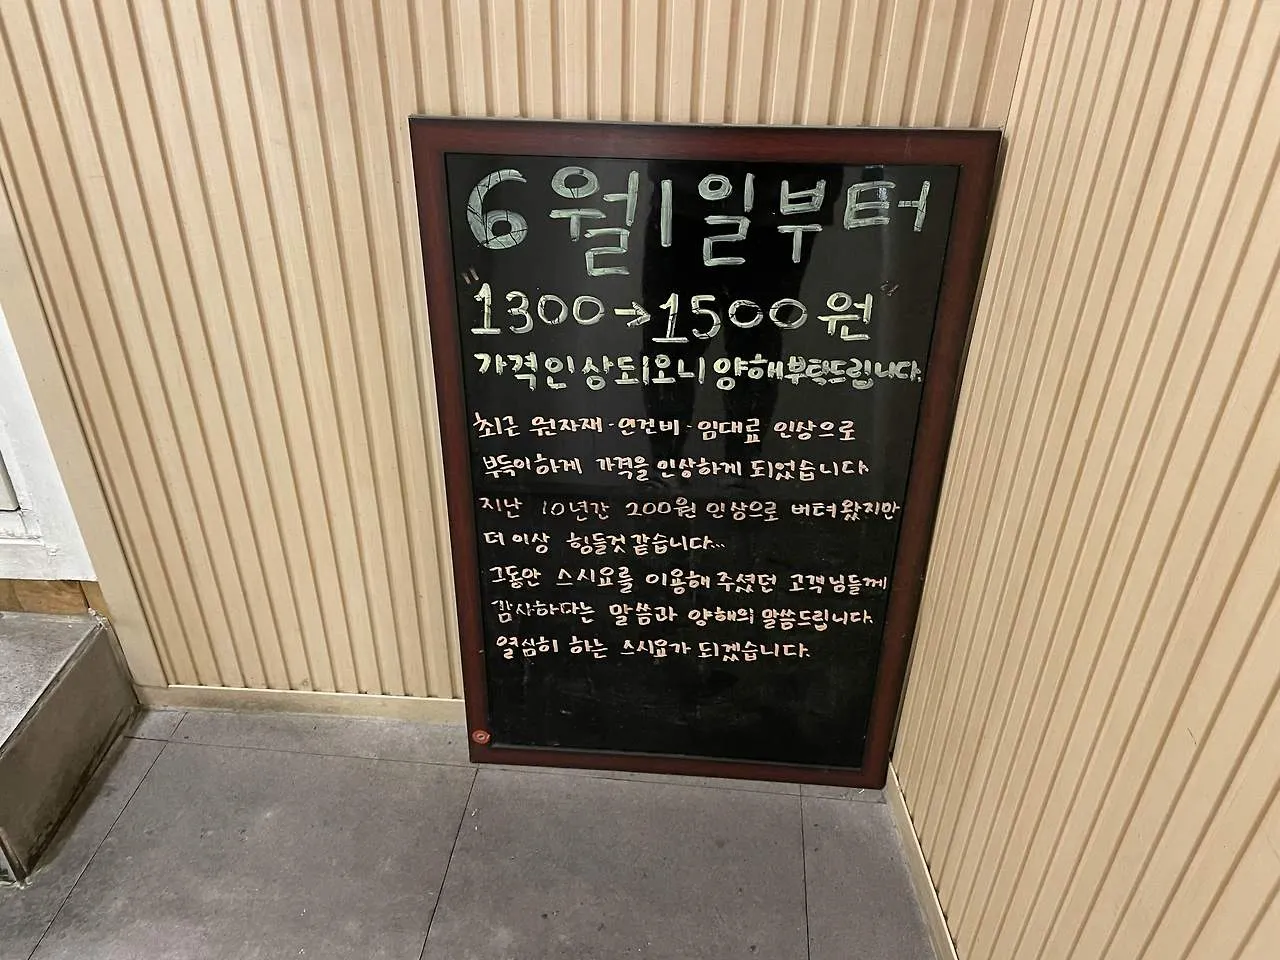 6월1일부터
"1300→1500원"
가격인상되오니 양해부탁드립니다.
최근 원자재·인건비·임대료 인상으로
부득이하게 가격을 인상하게 되었습니다.
지난 10년간 200원 인상으로 버텨왔지만
더이상 힘들것 같습니다...
그동안 스시요를 이용해 주셨던 고객님들께
감사하다는 말씀과 양해의 말씀드립니다.
열심히 하는 스시요가 되겠습니다.